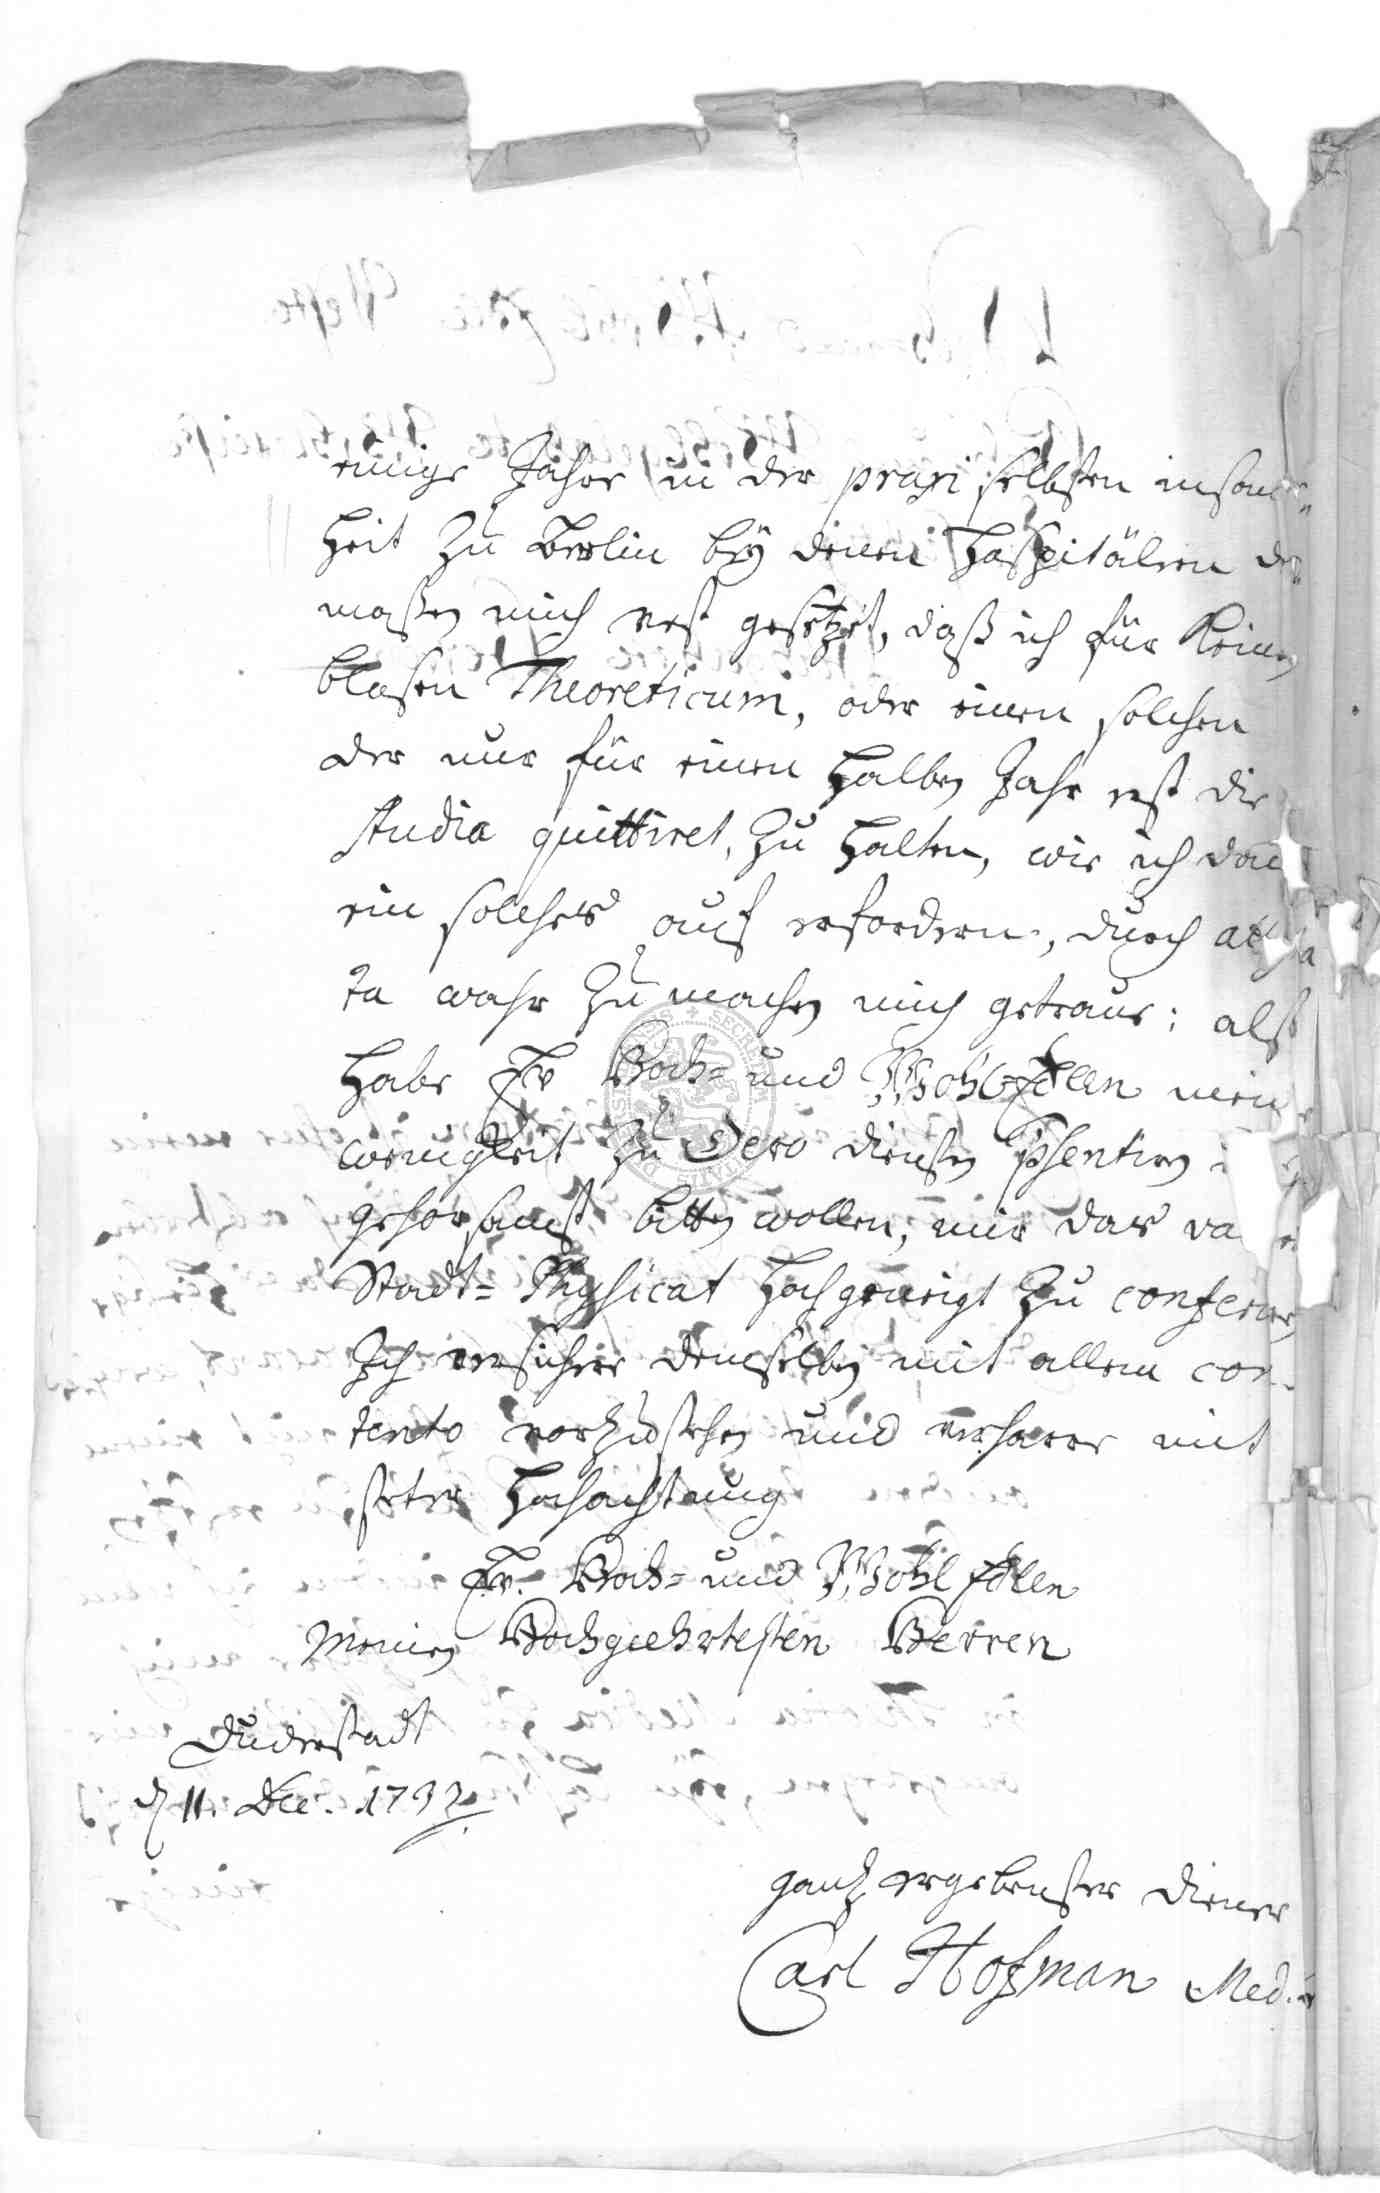 einige Jahre in der praxi selbsten inson
heit zu Berlin bey denen Hospitälern der
maßen mich vest gesetzet, daß ich für keinen
bloßen Theoreticum, oder einen solchen
der nur für einen halben Jahr erst die
Studia quittiret, zu halten, wie ich dan
ein solches auf erfordern, durch attesta
ta wahr zu machen mich getraue; alß
habe Ew Hoch= und Wohl=Edlen meine
wenigkeit zu Dero diensten p̄sentiren
gehorsamst bitten wollen, mir das va
Stadt= Physicat hochgeneigt zu conferiren
Ich versichere demselben mit allem con=
tento vorzustehen und verharre mit
steter Hochachtung
Ew. Hoch= und Wohl Edlen
Meinen Hochgeehrtesten Herren
Duderstadt
d 11. Dec. 1732
gantz ergebenster Diener
Carl Hofman Med.
SECRETUM